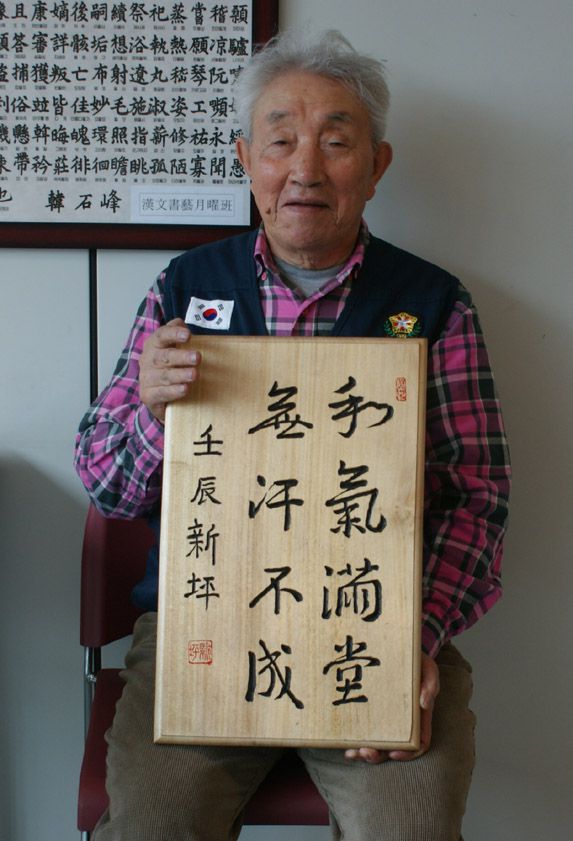 且康嫡後嗣續祭祀蒸嘗稽顙
顧答審詳骸垢想浴執熱願凉驢
捕獲叛亡布射遼丸嵇琴阮
利俗竝皆佳妙毛施淑姿工嚬
璣懸斡晦魄環照指薪修祐永綏
束帶矜莊徘徊瞻眺孤陋寡聞愚
也 韓石峰
漢文書藝月曜班
和氣滿堂
無汗不成
壬辰新坪